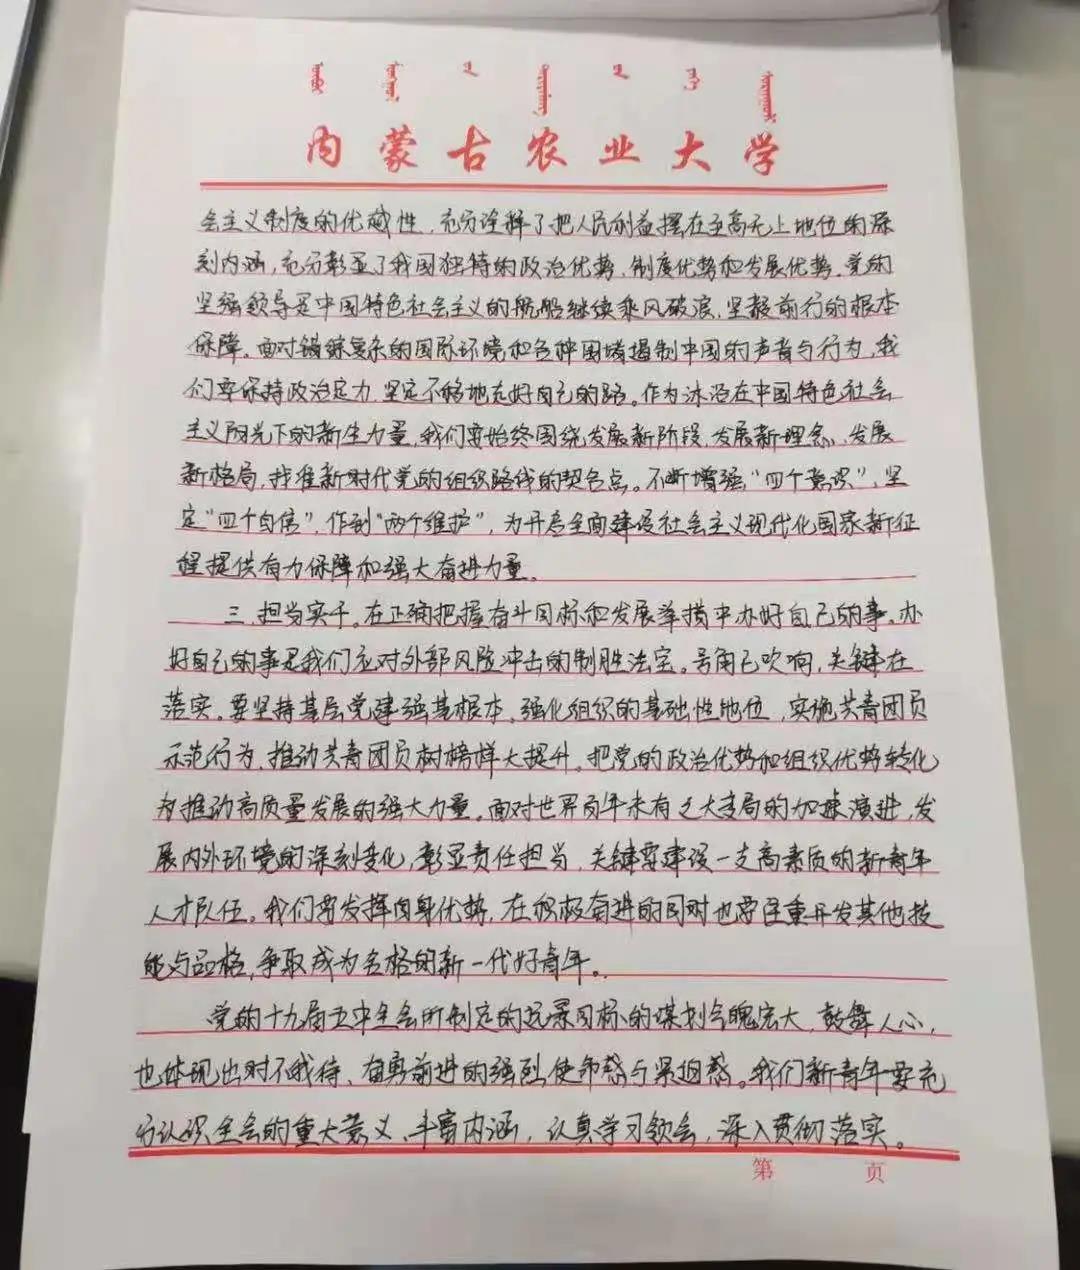 内蒙古农业大学
会主义制度的优越性，充分诠释了把人民利益摆在至高无上地位的深
刻内涵，充分彰显了我国独特的政治优势、制度优势和发展优势。党的
坚强领导是中国特色社会主义的航船继续乘风破浪，坚毅前行的根本
保障。面对错综复杂的国际环境和各种围堵遏制中国的声音与行为，我
们要保持政治定力，坚定不移地走好自己的路。作为沐浴在中国特色社会
主义阳光下的新生力量，我们要始终围绕发展新阶段、发展新理念、发展
新格局，找准新时代党的组织路线的契合点。不断增强“四个意识”，坚
定“四个自信”，作到“两个维护”，为开启全面建设社会主义现代化国家新征
程提供有力保障和强大奋进力量。
三、担当实干。在正确把握奋斗目标和发展举措中办好自己的事。办
好自己的事是我们应对外部风险冲击的制胜法宝。号角已吹响，关键在
落实。要坚持基层党建强基根本，强化组织的基础性地位，实施共青团员
示范行为，推动共青团员树榜样大提升。把党的政治优势和组织优势转化
为推动高质量发展的强大力量。面对世界百年未有之大变局的加速演进，发
展内外环境的深刻变化，彰显责任担当，关键要建设一支高素质的新青年
人才队伍。我们要发挥自身优势，在积极奋进的同时也要注重开发其他技
能与品格，争取成为合格的新一代好青年。
党的十九届五中全会所制定的远景目标的谋划气魄宏大，鼓舞人心，
也体现出时不我待、奋勇前进的强烈使命感与紧迫感。我们新青年要充
分认识全会的重大意义、丰富内涵，认真学习领会，深入贯彻落实。
第 页